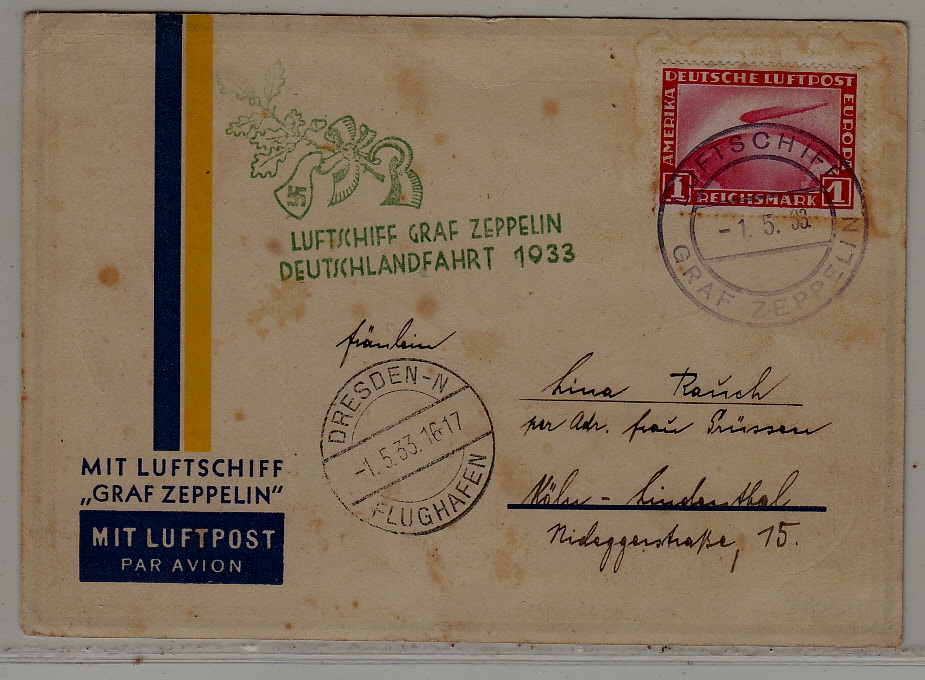 DEUTSCHE LUFTPOST
AMERIKA
EUROPA
1 REICHSMARK 1
LUFTSCHIFF
-1. 5. 33.
GRAF ZEPPELIN
LUFTSCHIFF GRAF ZEPPELIN
DEUTSCHLANDFAHRT 1933
Fräulein
Lina Rauch
per Adr. Frau Prüssen
Köln - Lindenthal
Nideggerstraße, 15.
DRESDEN-N
-1.5.33.16-17
FLUGHAFEN
MIT LUFTSCHIFF
„GRAF ZEPPELIN“
MIT LUFTPOST
PAR AVION